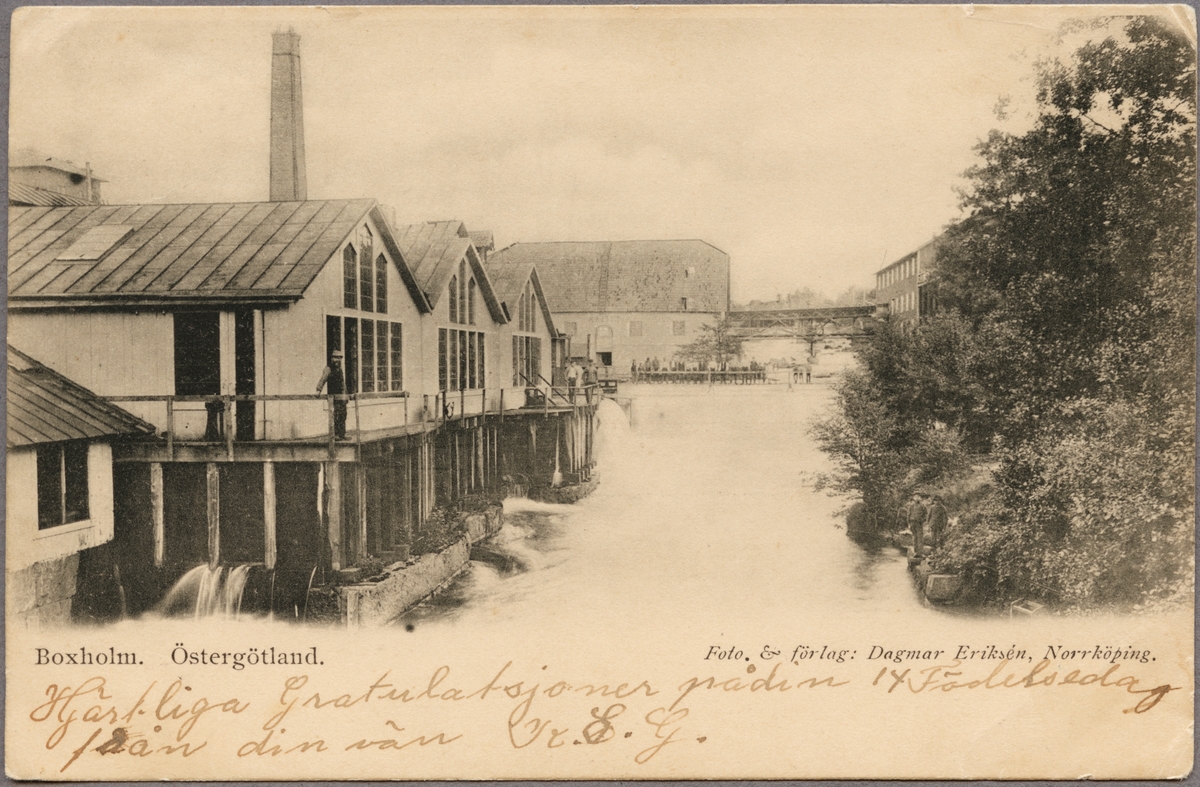 Boxholm. Östergötland.
Foto. & förlag: Dagmar Eriksén, Norrköping.
Hjärtliga Gratulatsjoner på din 14 Födelsedag
från din vän K. E. G.